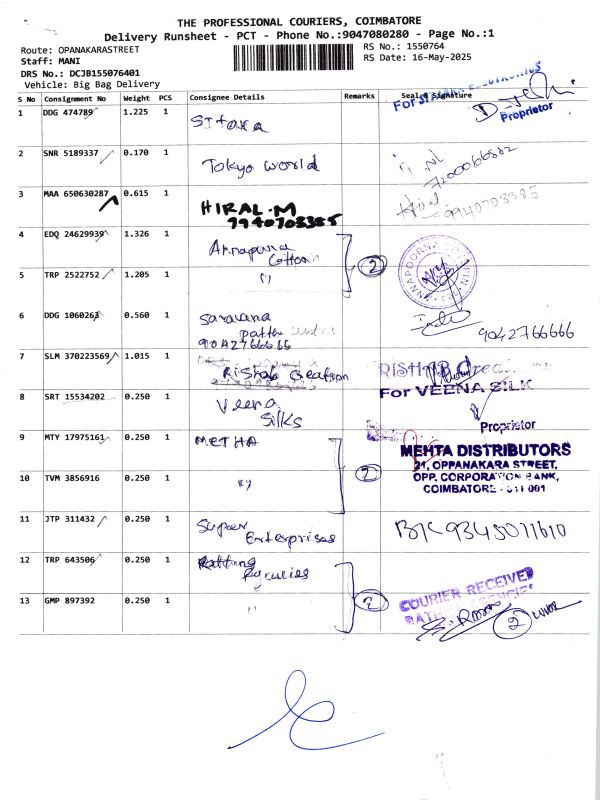 THE PROFESSIONAL COURIERS, COIMBATORE
Delivery Runsheet - PCT - Phone No.:9047080280 - Page No.:1
Route: OPANAKARASTREET
RS No.: 1550764
Staff: MANI
RS Date: 16-May-2025
DRS No.: DCJB155076401
Vehicle: Big Bag Delivery
S No Consignment No Weight PCS Consignee Details Remarks Seal & Signature
For ELECTRONICS
Proprietor
1 DDG 474789 1.225 1 Sitara
2 SNR 5189337 0.170 1 Tokyo World
3 MAA 650630287 0.615 1 HIRAL.M
7940703385
Hiral
9940703385
4 EDQ 24629939 1.326 1 Annapurna
Cotton
2
5 TRP 2522752 1.205 1 "
6 DDG 1060263 0.560 1 Saravana
9042766666
9042766666
7 SLM 370223569 1.015 1 Rishab Creation
RISHAB
8 SRT 15534202 0.250 1 Veena
Silks
For VEENA SILK
Proprietor
9 MTY 17975161 0.250 1 METHA
2
MEHTA DISTRIBUTORS
21, OPPANAKARA STREET,
OPP. CORPORATION BANK,
COIMBATORE - 641 001
10 TVM 3856916 0.250 1 "
11 JTP 311432 0.250 1 Super
Enterprises
12 TRP 643506 0.250 1
Agencies
2
COURIER RECEIVED
13 GMP 897392 0.250 1 "
2